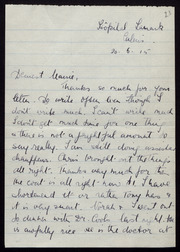 Hôpital Lamarck
20. 6. 15
Dearest Mamie,
Thanks so much for your
letter. Do write often even though I
don't write much. I can't write much
I don't at much time for one thing
& there is not a frightful amount to
say really. I am still doing
chauffeur. Chris brought out the
all right. thanks very much for the
the coat is all right now it. I have
shortened it or rather Tony has &
it is very smart. & I went out
to dinner with Dr Cooke last night He
is awfully nice he is the doctor at